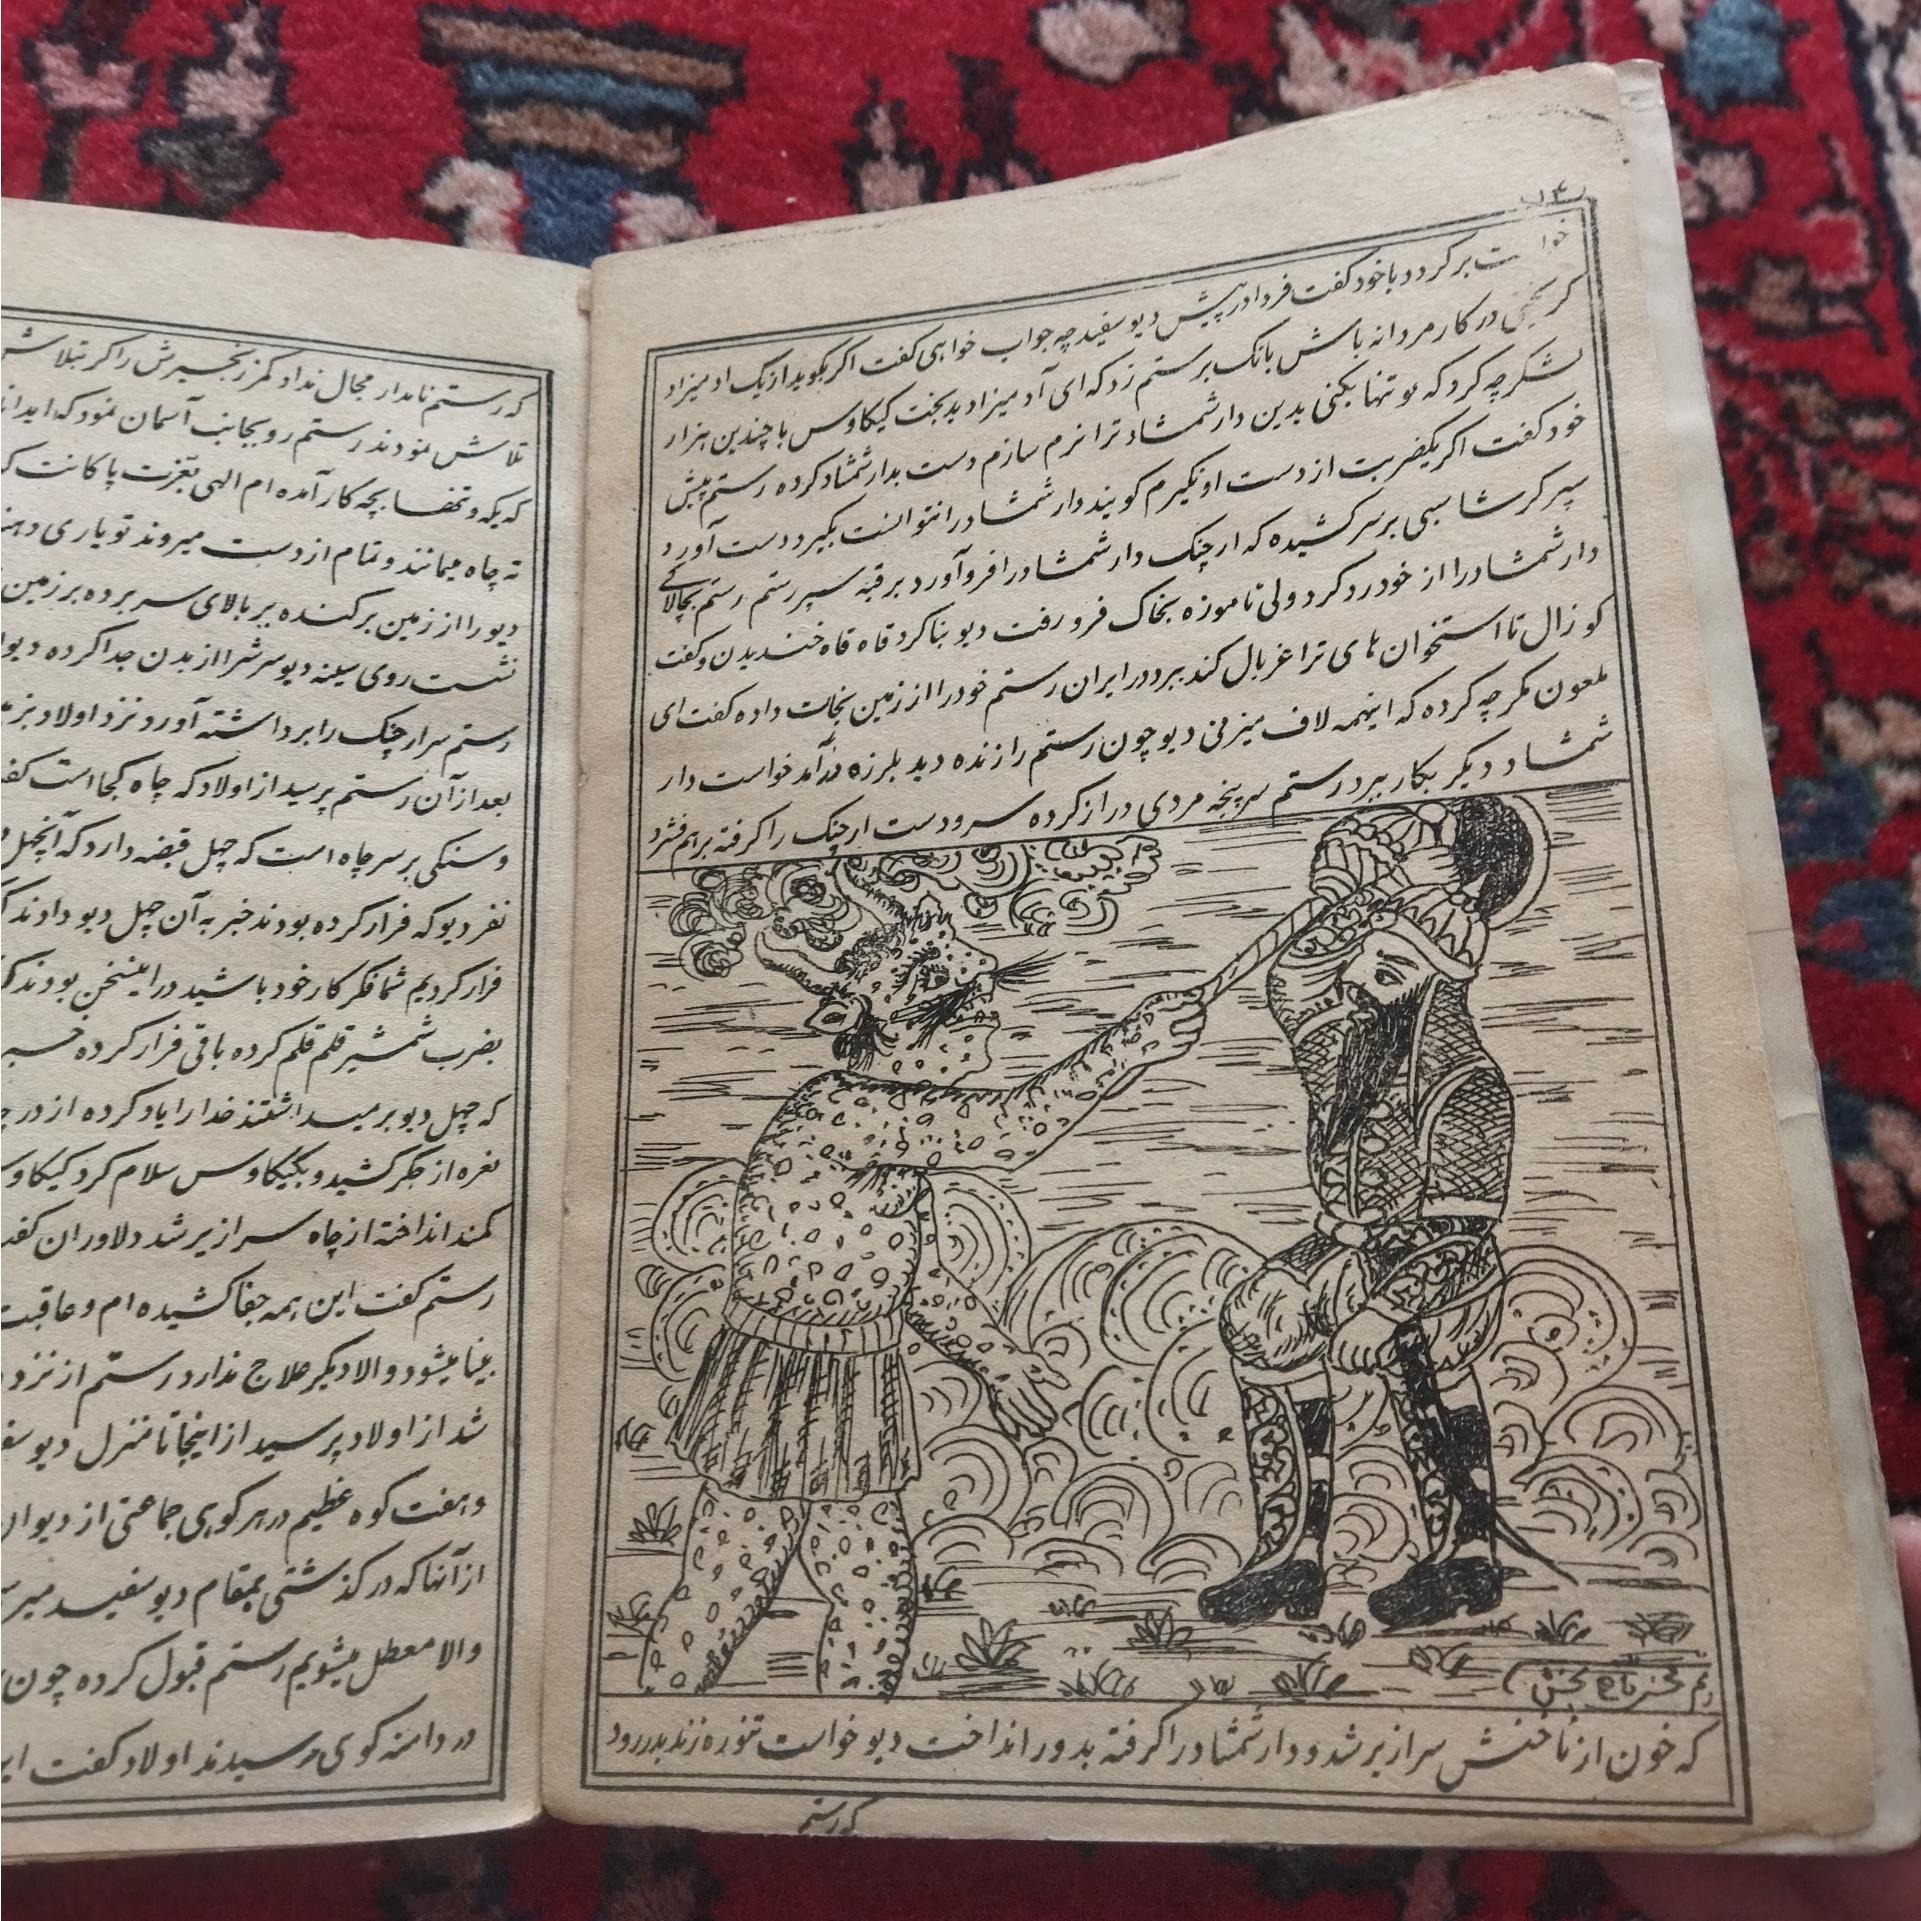 ۱۴
خوا ست برکردد باخود کفت فردا در پیش دیو سفید چه جواب خواهی کفت اکر بکوید از یک ادمیزاد
کریختی در کار مردانه باش بانک بر رستم زد که ای آدمیزاد بدبخت کیکاوس با چندین هزار
لشکر چه کرد که تو تنها بکنی بدین دار شمشاد ترا نرم سازم دست بدار شمشاد کرده رستم پیش
خود کفت اکر یکضربت از دست او نکیرم کویند دار شمشاد را نتوانست بکیرد دست آورد
سپر کرشاسبی بر سر کشیده که ارچنک دار شمشاد را فرو آورد بر قبه سپر رستم رستم بچالاکی
دار شمشاد را از خود رد کرد ولی تا موزه بخاک فرو رفت دیو بنا کرد قاه قاه خندیدن و کفت
کو زال تا استخوان های ترا غربال کند ببرد در ایران رستم خود را از زمین نجات داده کفت ای
ملعون مکر چه کرده که اینهمه لاف میزنی دیو چون رستم را زنده دید بلرزه درآمد خواست دار
شمشاد دیکر بکار ببرد رستم سرپنجه مردی دراز کرده سر و دست ارچنک را کرفته برهم فشرد
که خون از ناخنش سرازیر شد و دار شمشاد را کرفته بدور انداخت دیو خواست تنوره زند بدر رود
که رستم
که رستم نامدار مجال نداد کمر زنجیرش را کر تبلاش
تلاش نمودند رستم رو بجانب آسمان نمود که
که یکه و تنها بچه کار آمده ام الهی بعزت پاکانت
ته چاه میمانند و تمام از دست میروند تو یاری
دیو را از زمین برکنده بر بالای سر برده بر زمین
نشست روی سینه دیو سرش را از بدن جدا کرده
رستم سر ارچنک را برداشته آورد نزد اولاد
بعد از آن رستم پرسید از اولاد که چاه کجا است
و سنکی بر سر چاه است که چهل قبضه دارد که
نفر دیو که فرار کرده بودند خبر به آن چهل دیو دادند
فرار کردیم شما فکر کار خود باشید در اینسخن بودند
بضرب شمشیر قلم قلم کرده باقی فرار کرده
که چهل دیو بر میداشتند خدا را یاد کرده از در
نعره از جکر کشید و بکیکاوس سلام کرد
کمند انداخته از چاه سرازیر شد دلاوران
رستم کفت این همه جفا کشیده ام و عاقبت
بینا میشود والا دیکر علاج ندارد رستم از نزد
شد از اولاد پرسید از اینجا تا منزل دیو
و هفت کوه عظیم در هر کوهی جماعتی از دیوان
از آنها که در کذشتی بمقام دیو سفید
والا معطل میشویم رستم قبول کرده چون
در دامنه کوهی رسیدند اولاد کفت